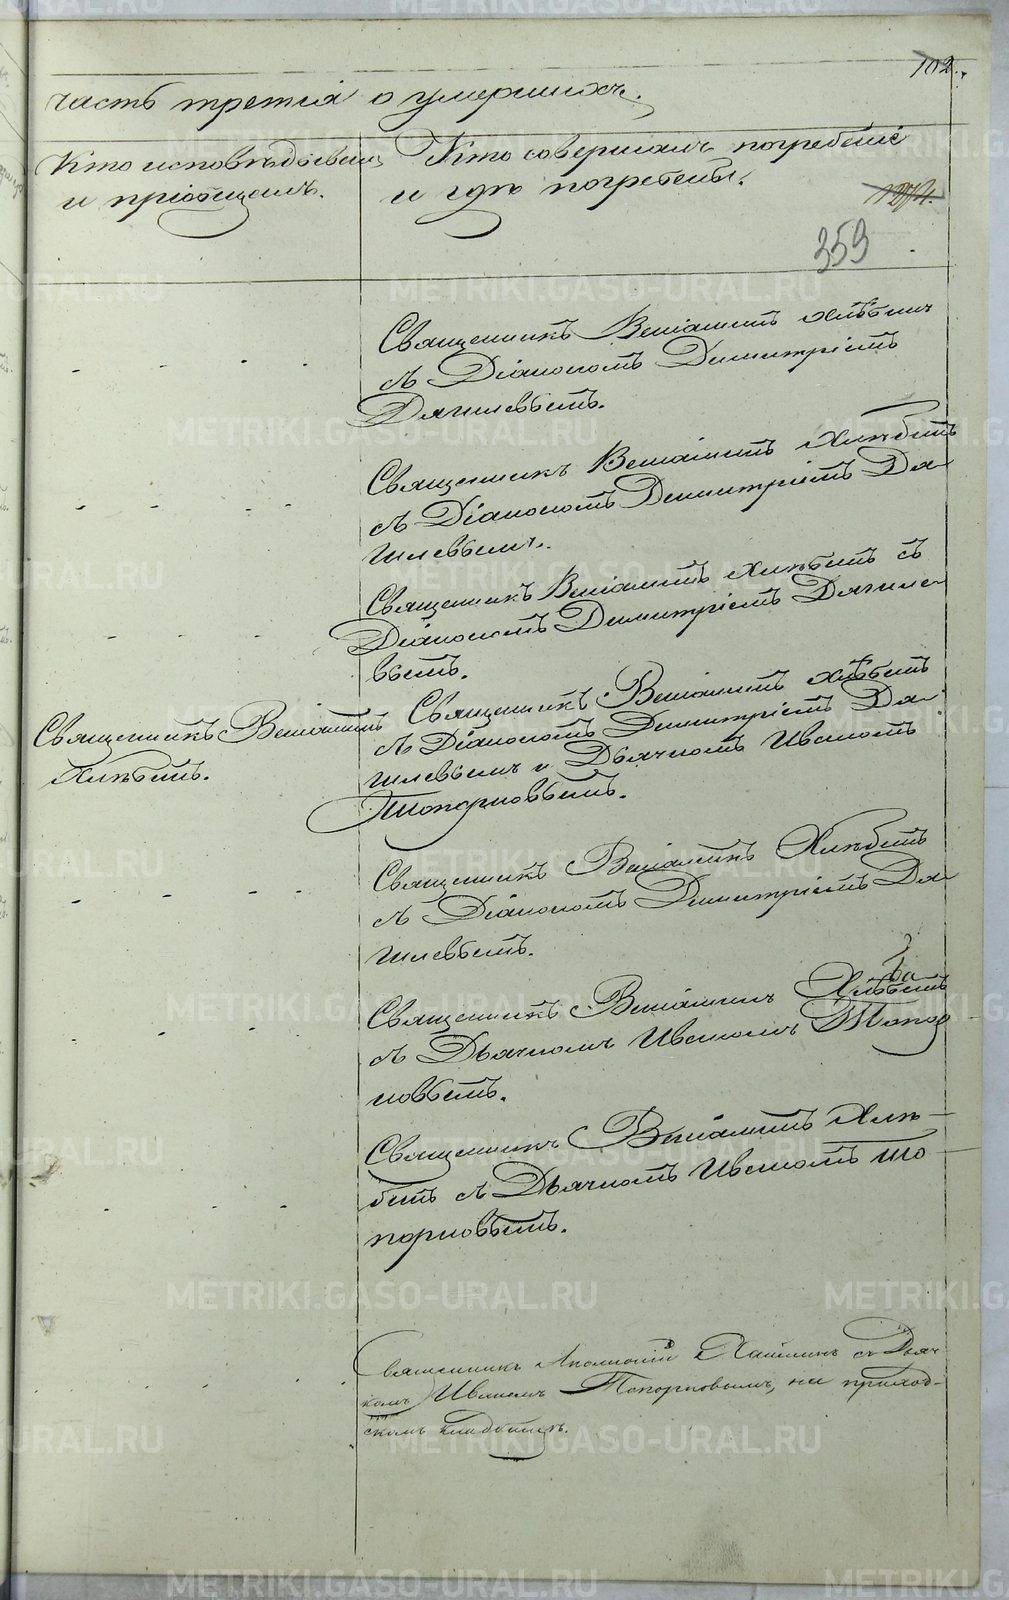 102.
часть третія о умершихъ.
Кто исповѣдывалъ
и пріобщалъ.
Кто совершалъ погребеніе
и гдѣ погребены.
359
Священникъ Веніаминъ Хлѣбинъ
съ Діакономъ Димитріемъ
Дягилевымъ.
Священникъ Веніаминъ Хлѣбинъ
съ Діакономъ Димитріемъ Дя-
гилевымъ.
Священникъ Веніаминъ Хлѣбинъ съ
Діакономъ Димитріемъ Дягиле-
вымъ.
Священникъ Веніаминъ
Хлѣбинъ.
Священникъ Веніаминъ Хлѣбинъ
съ Діакономъ Димитріемъ Дя-
гилевымъ и Дьячкомъ Иваномъ
Топорковымъ.
Священникъ Веніаминъ Хлѣбинъ
съ Діакономъ Димитріемъ Дя-
гилевымъ.
Священникъ Веніаминъ Хлѣбинъ
съ Дьячкомъ Иваномъ Топор-
ковымъ.
Священникъ Веніаминъ Хлѣ-
бинъ съ Дьячкомъ Иваномъ То-
порковымъ.
Священникъ съ Дьяч-
комъ Иваномъ Топорковымъ, на приход-
скомъ кладбищѣ.
METRIKI.GASO-URAL.RU